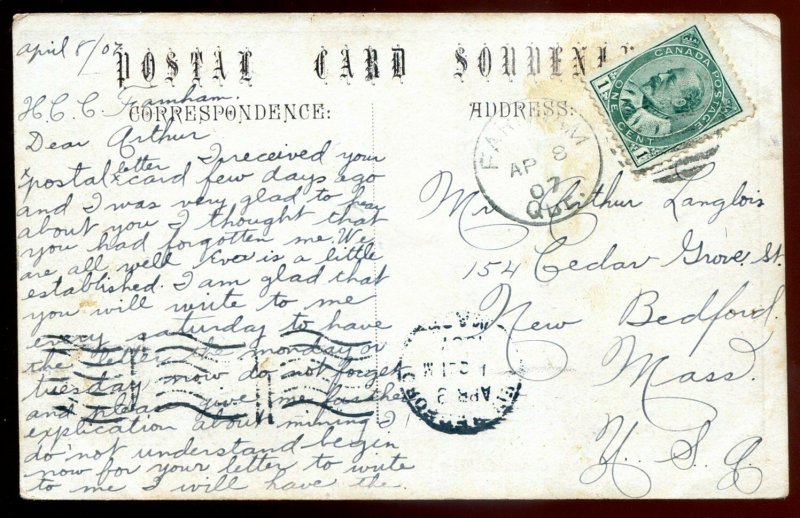 april 8/07
POSTAL CARD SOUVENIR
H.C.C. Farnham.
CORRESPONDENCE:
Dear Arthur
letter I received your
postal x card few days ago
and I was very glad to hear
about you I thought that
you had forgotten me. We
are all well Eva is a little
established. I am glad that
you will write to me
every saturday to have
the letter the monday or
tuesday now do not forget
and please give me further
explication about mining I
do not understand begin
now for your letter to write
to me I will have the
ADDRESS:
FARNHAM
AP 8
07
QUE.
CANADA POSTAGE
ONE CENT
1
1
Mr Arthur Langlois
154 Cedar Grove St.
New Bedford
Mass.
U.S.A.
NEW BEDFORD
APR 9
MASS